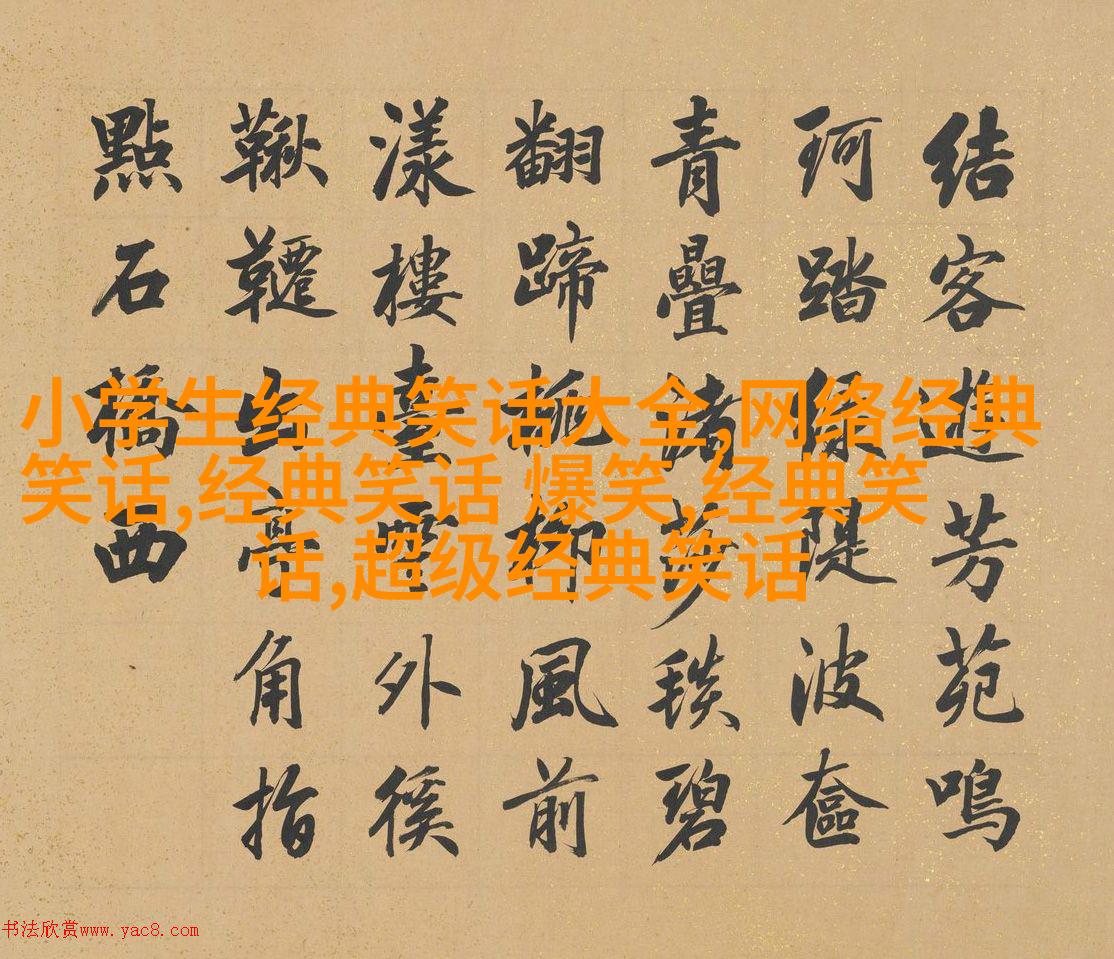 結客芳苑鳴
珂踏綠隄波奩
青疊莎毯碧
翻蹄柳風前
漾樓臺雲外徯
鞦韆出亭角指
點石橋西
小学生经典笑话大全,网络经典
笑话,经典笑话 爆笑,经典笑
话,超级经典笑话
书法欣赏www.yac8.com